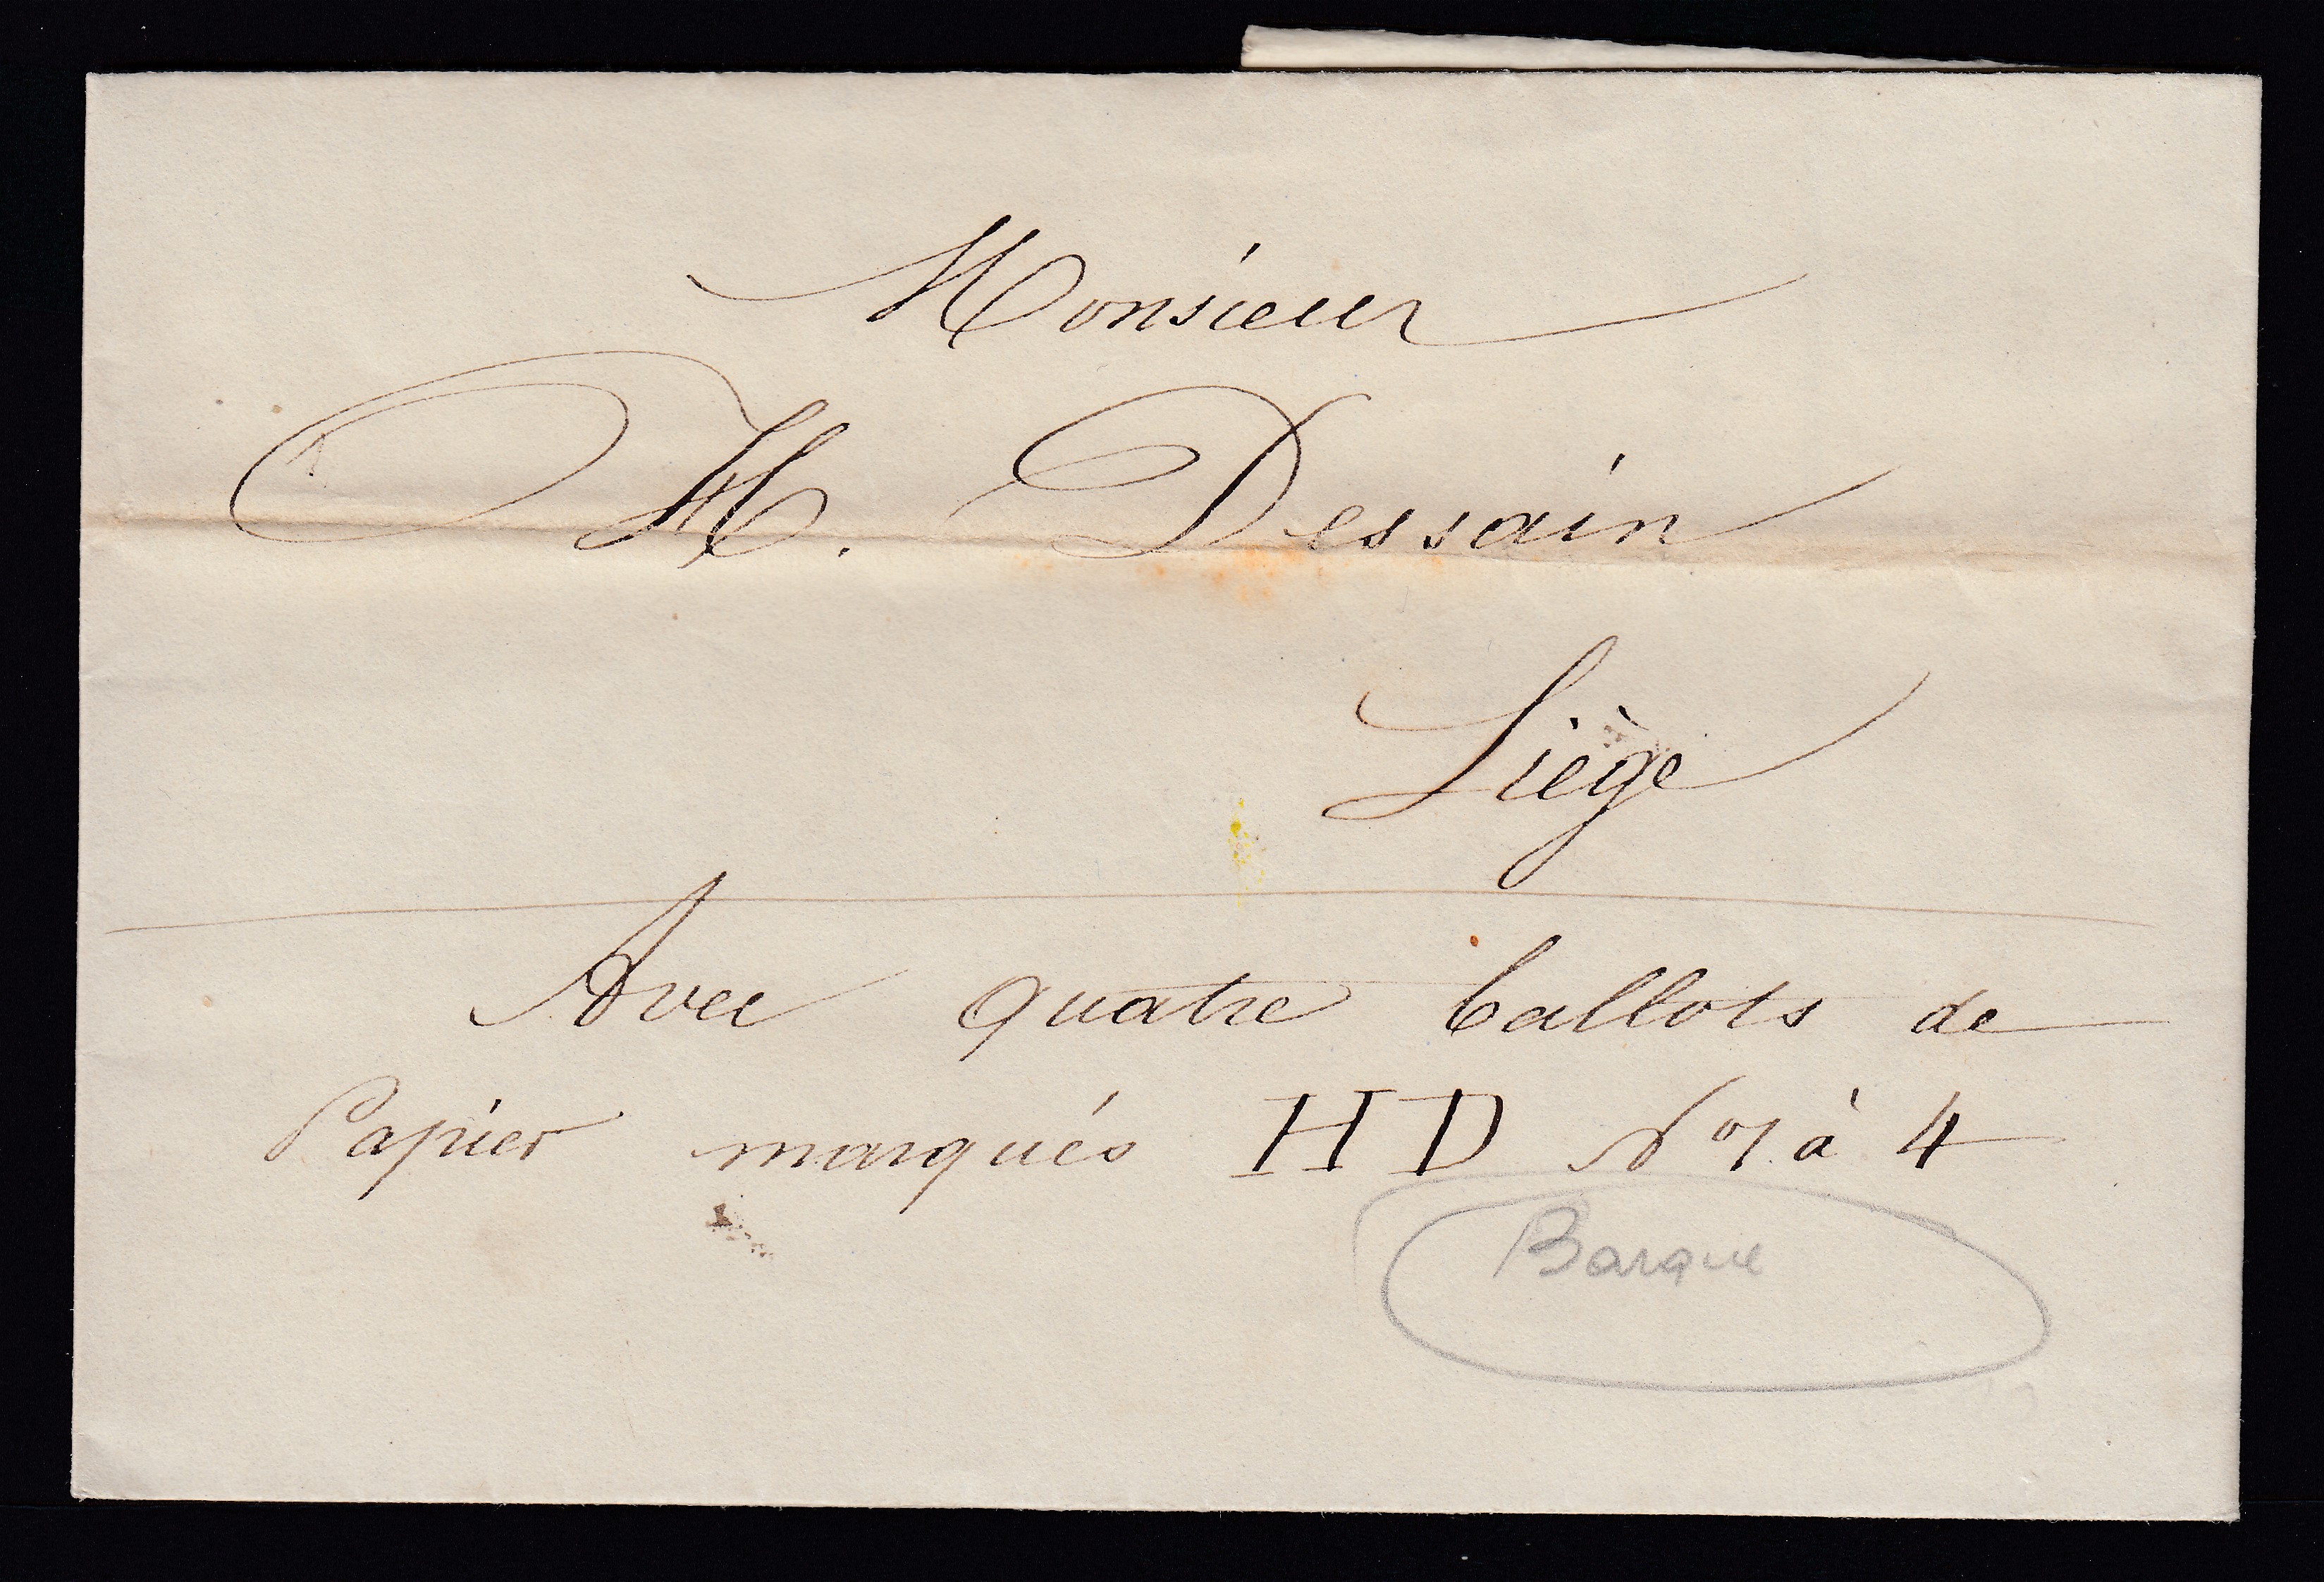 Monsieur
H. Dessain
Liège
Avec quatre ballots de
Papier marqués HD No 1 à 4
Barque